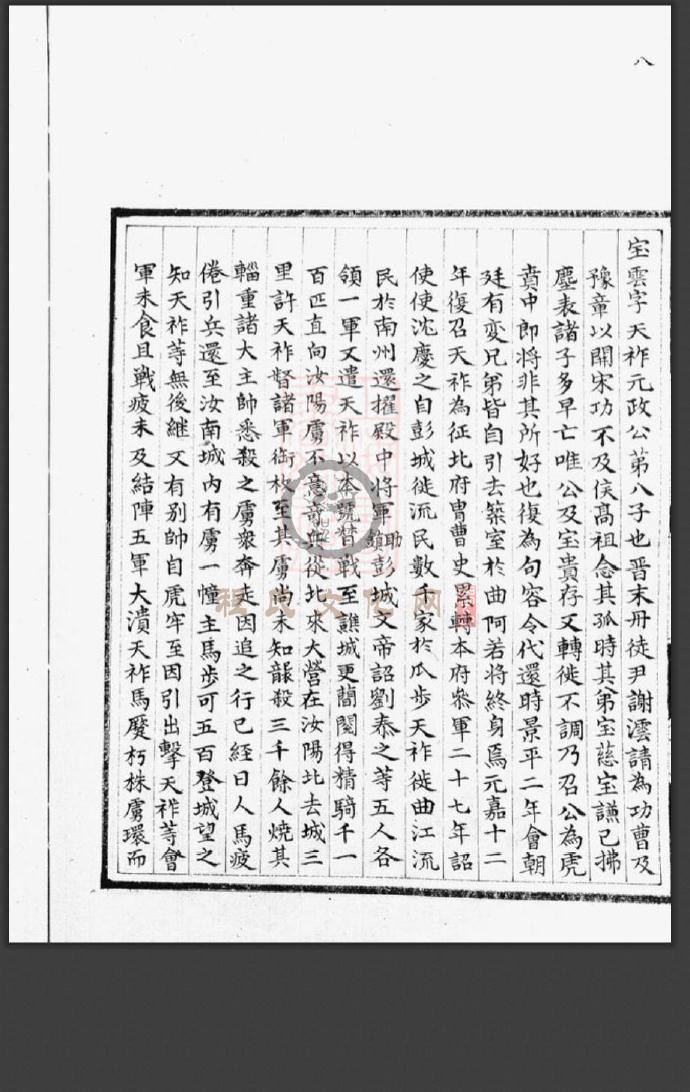 八
宝雲字天祚元政公苐八子也晋末丹徒尹謝澐請為功曹及
豫章以開宋功不及侯髙祖念其孤時其苐宝慈宝謙已拂
塵表諸子多早亡唯公及宝貴存又轉徙不調乃召公為虎
賁中郎将非其所好也復為句容令代還時景平二年會朝
廷有变兄弟皆自引去築室於曲阿若将終身焉元嘉十二
年復召天祚為征北府胄曹史累轉本府叅軍二十七年詔
使使沈慶之自彭城徙流民數千家於瓜步天祚徙曲江流
民於南州還擢殿中将軍助鎮彭城文帝詔劉泰之等五人各
領一軍又遣天祚以本號督戰至譙城更簡閱得精騎千一
百匹直向汝陽虜不意竒兵從北來大營在汝陽北去城三
里許天祚督諸軍銜枚至其虜尚未知襲殺三千餘人燒其
輜重諸大主帥悉殺之虜衆奔走因追之行已經日人馬疲
倦引兵還至汝南城内有虜一幢主馬步可五百登城望之
知天祚䓁無後継又有别帥自虎牢至因引出擊天祚䓁會
軍未食且戰疲未及結陣五軍大潰天祚馬蹷朽株虜環而
程氏文化网